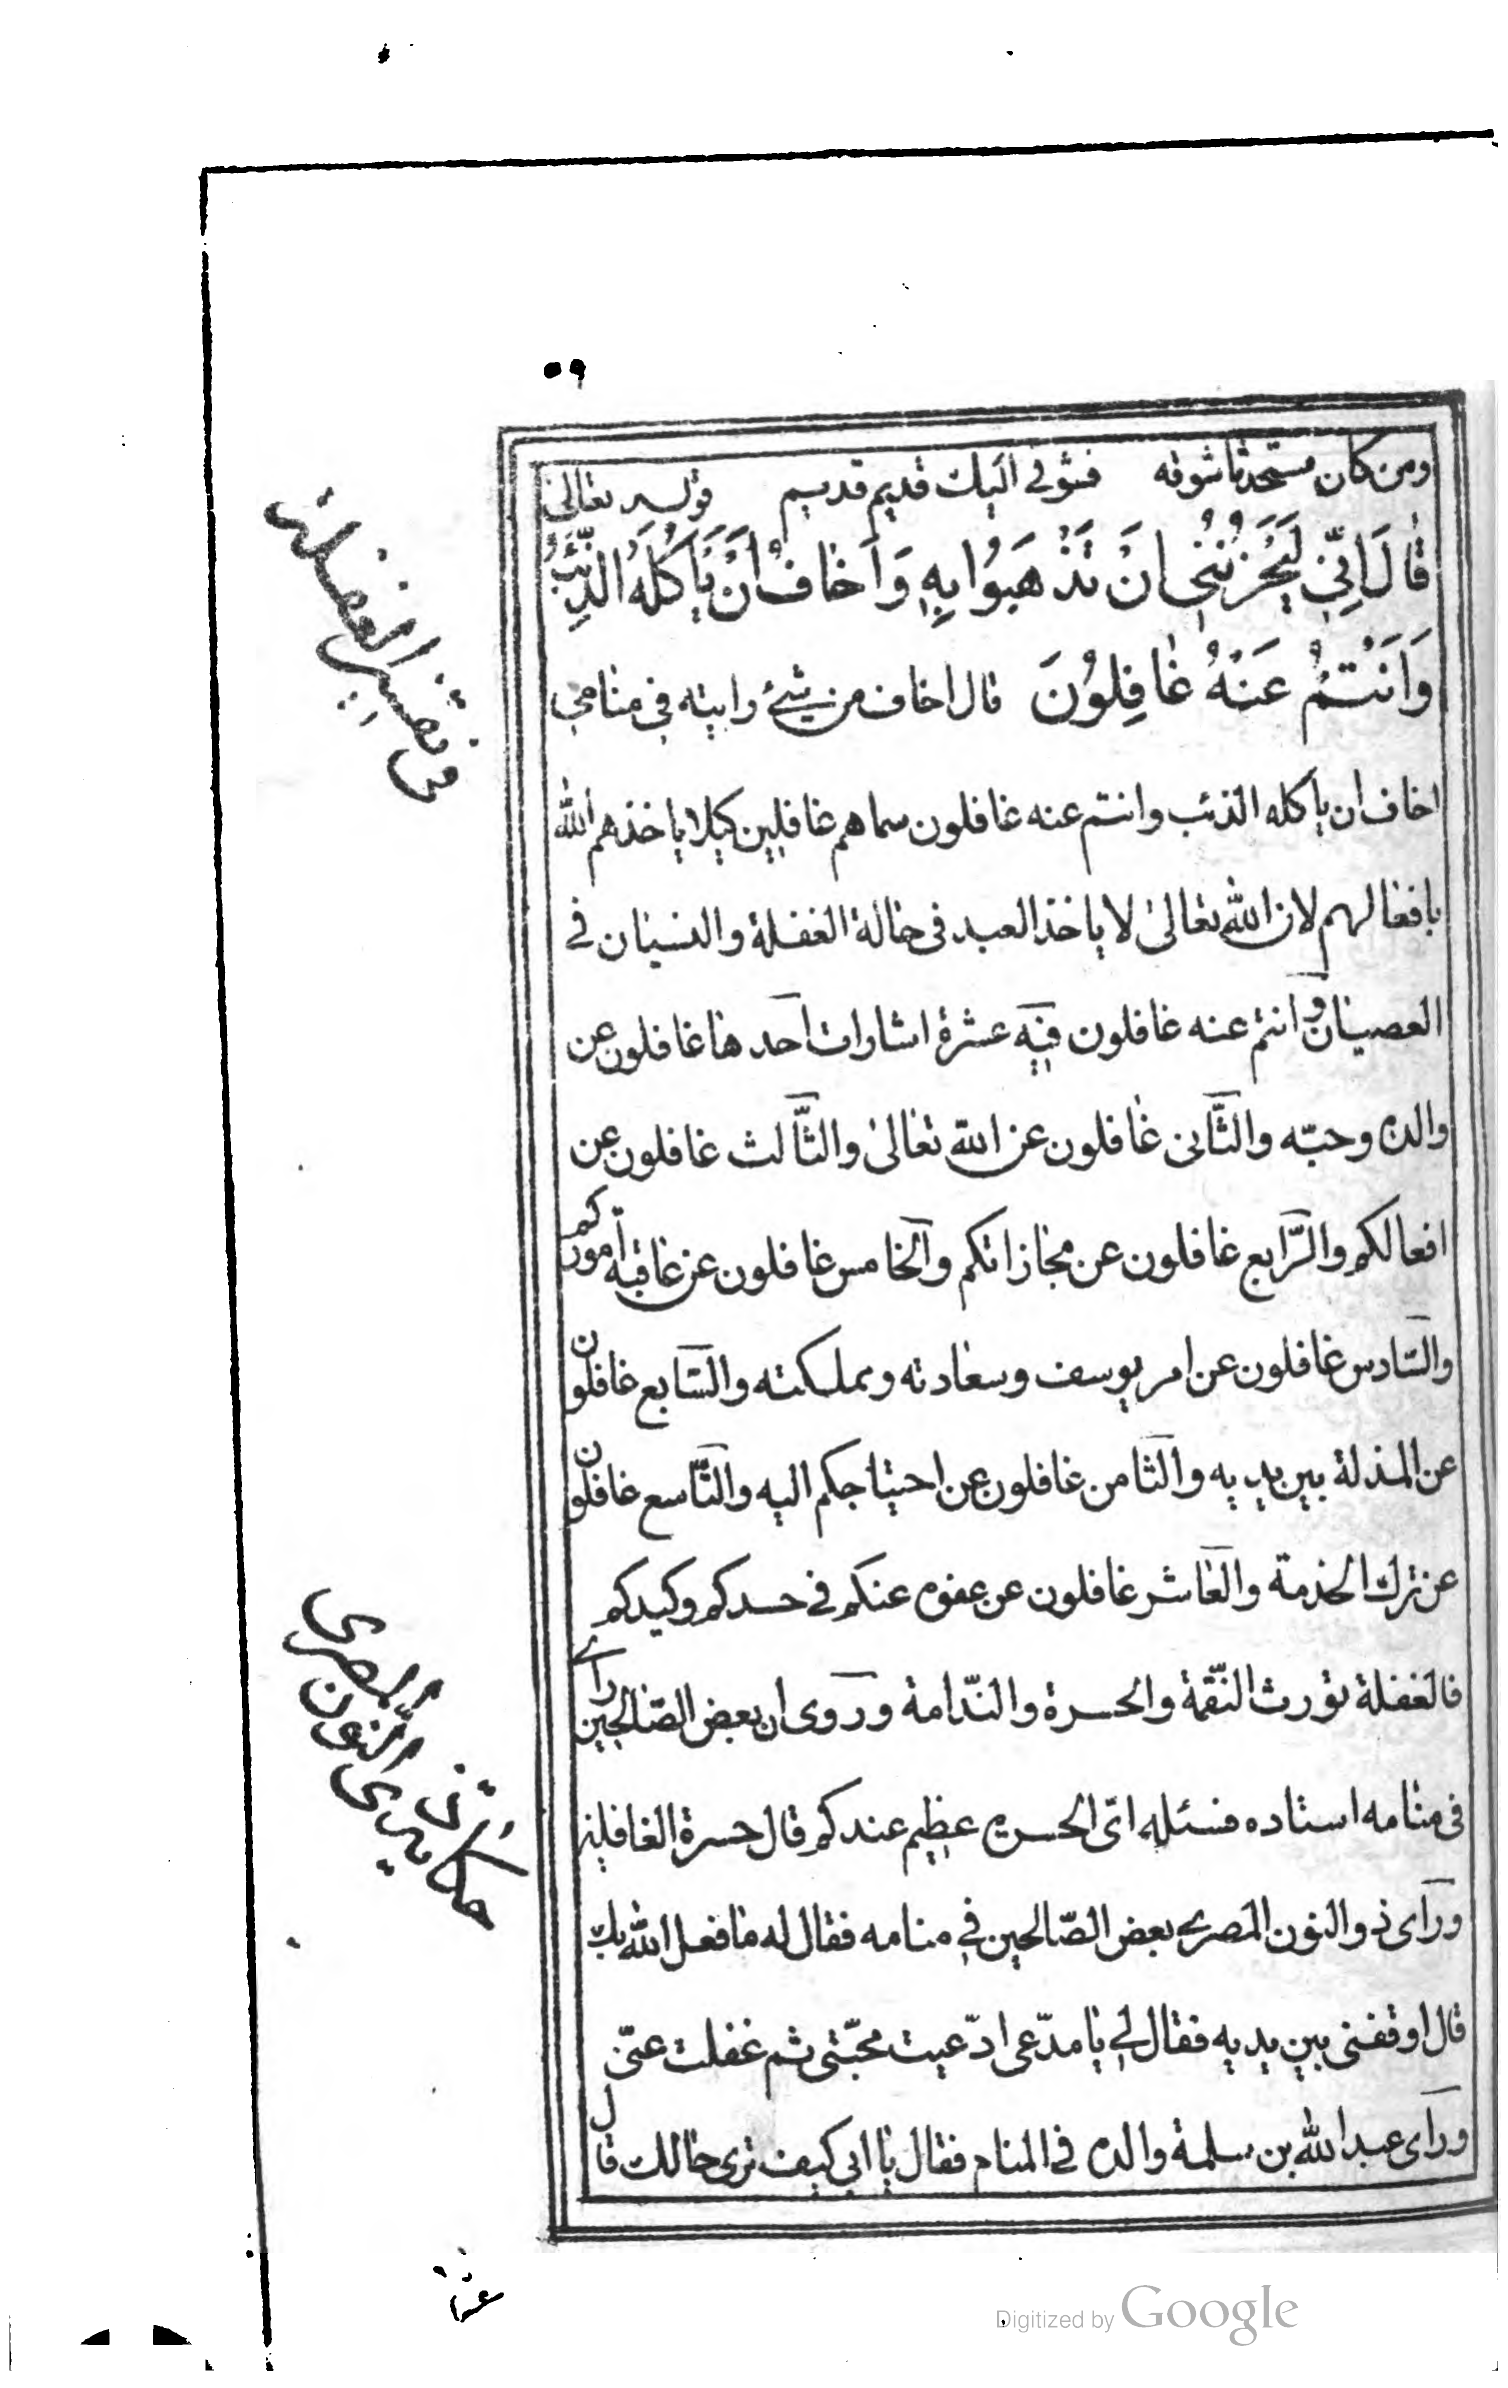 ٥٩
ومن كان مستحدثا شوقه فشوقى اليك قديم قديم قوله تعالى
قَالَ اِنّى لَيَحْزُنُنى اَنْ تَذْهَبُوا بِهِ وَاَخَافُ اَنْ يَاْكُلَهُ الذِّئْبُ
وَاَنْتُمْ عَنْهُ غَافِلُونَ قال اخاف من شئ رايته فى منامى
اخاف ان ياكله الذئب وانتم عنه غافلون سماهم غافلين كيلا ياخذهم الله
بافعالهم لان الله تعالى لا ياخذ العبد فى حالة الغفلة والنسيان فى
العصيان وانتم عنه غافلون فيه عشرة اشارات احدها غافلون عن
والده وحبّه والثّانى غافلون عن الله تعالى والثّالث غافلون عن
افعالكم والرّابع غافلون عن مجازاتكم والخامس غافلون عن عاقبة أموركم
والسّادس غافلون عن امر يوسف وسعادته ومملكته والسّابع غافلون
عن المذلة بين يديه والثامن غافلون عن احتياجكم اليه والتّاسع غافلون
عن ترك الخدمة والعاشر غافلون عن عفوه عنكم فى حسدكم وكيدكم
فالغفلة تورث النّقمة والحسرة والنّدامة وروى ان بعض الصّالحين رأى
فى منامه استاده فسئله اىّ الحسره عظيم عندكم قال حسرة الغافلين
وراى ذوالنون المصرى بعض الصّالحين فى منامه فقال له ما فعل الله بك
قال اوقفنى بين يديه فقال لى يا مدّعى ادّعيت محبّتى ثم غفلت عنّى
وراى عبد الله بن سلمة والده فى المنام فقال يا ابى كيف ترى حالك قال
فى تفسير الغفلة
حكاية ذى النّون المصرى